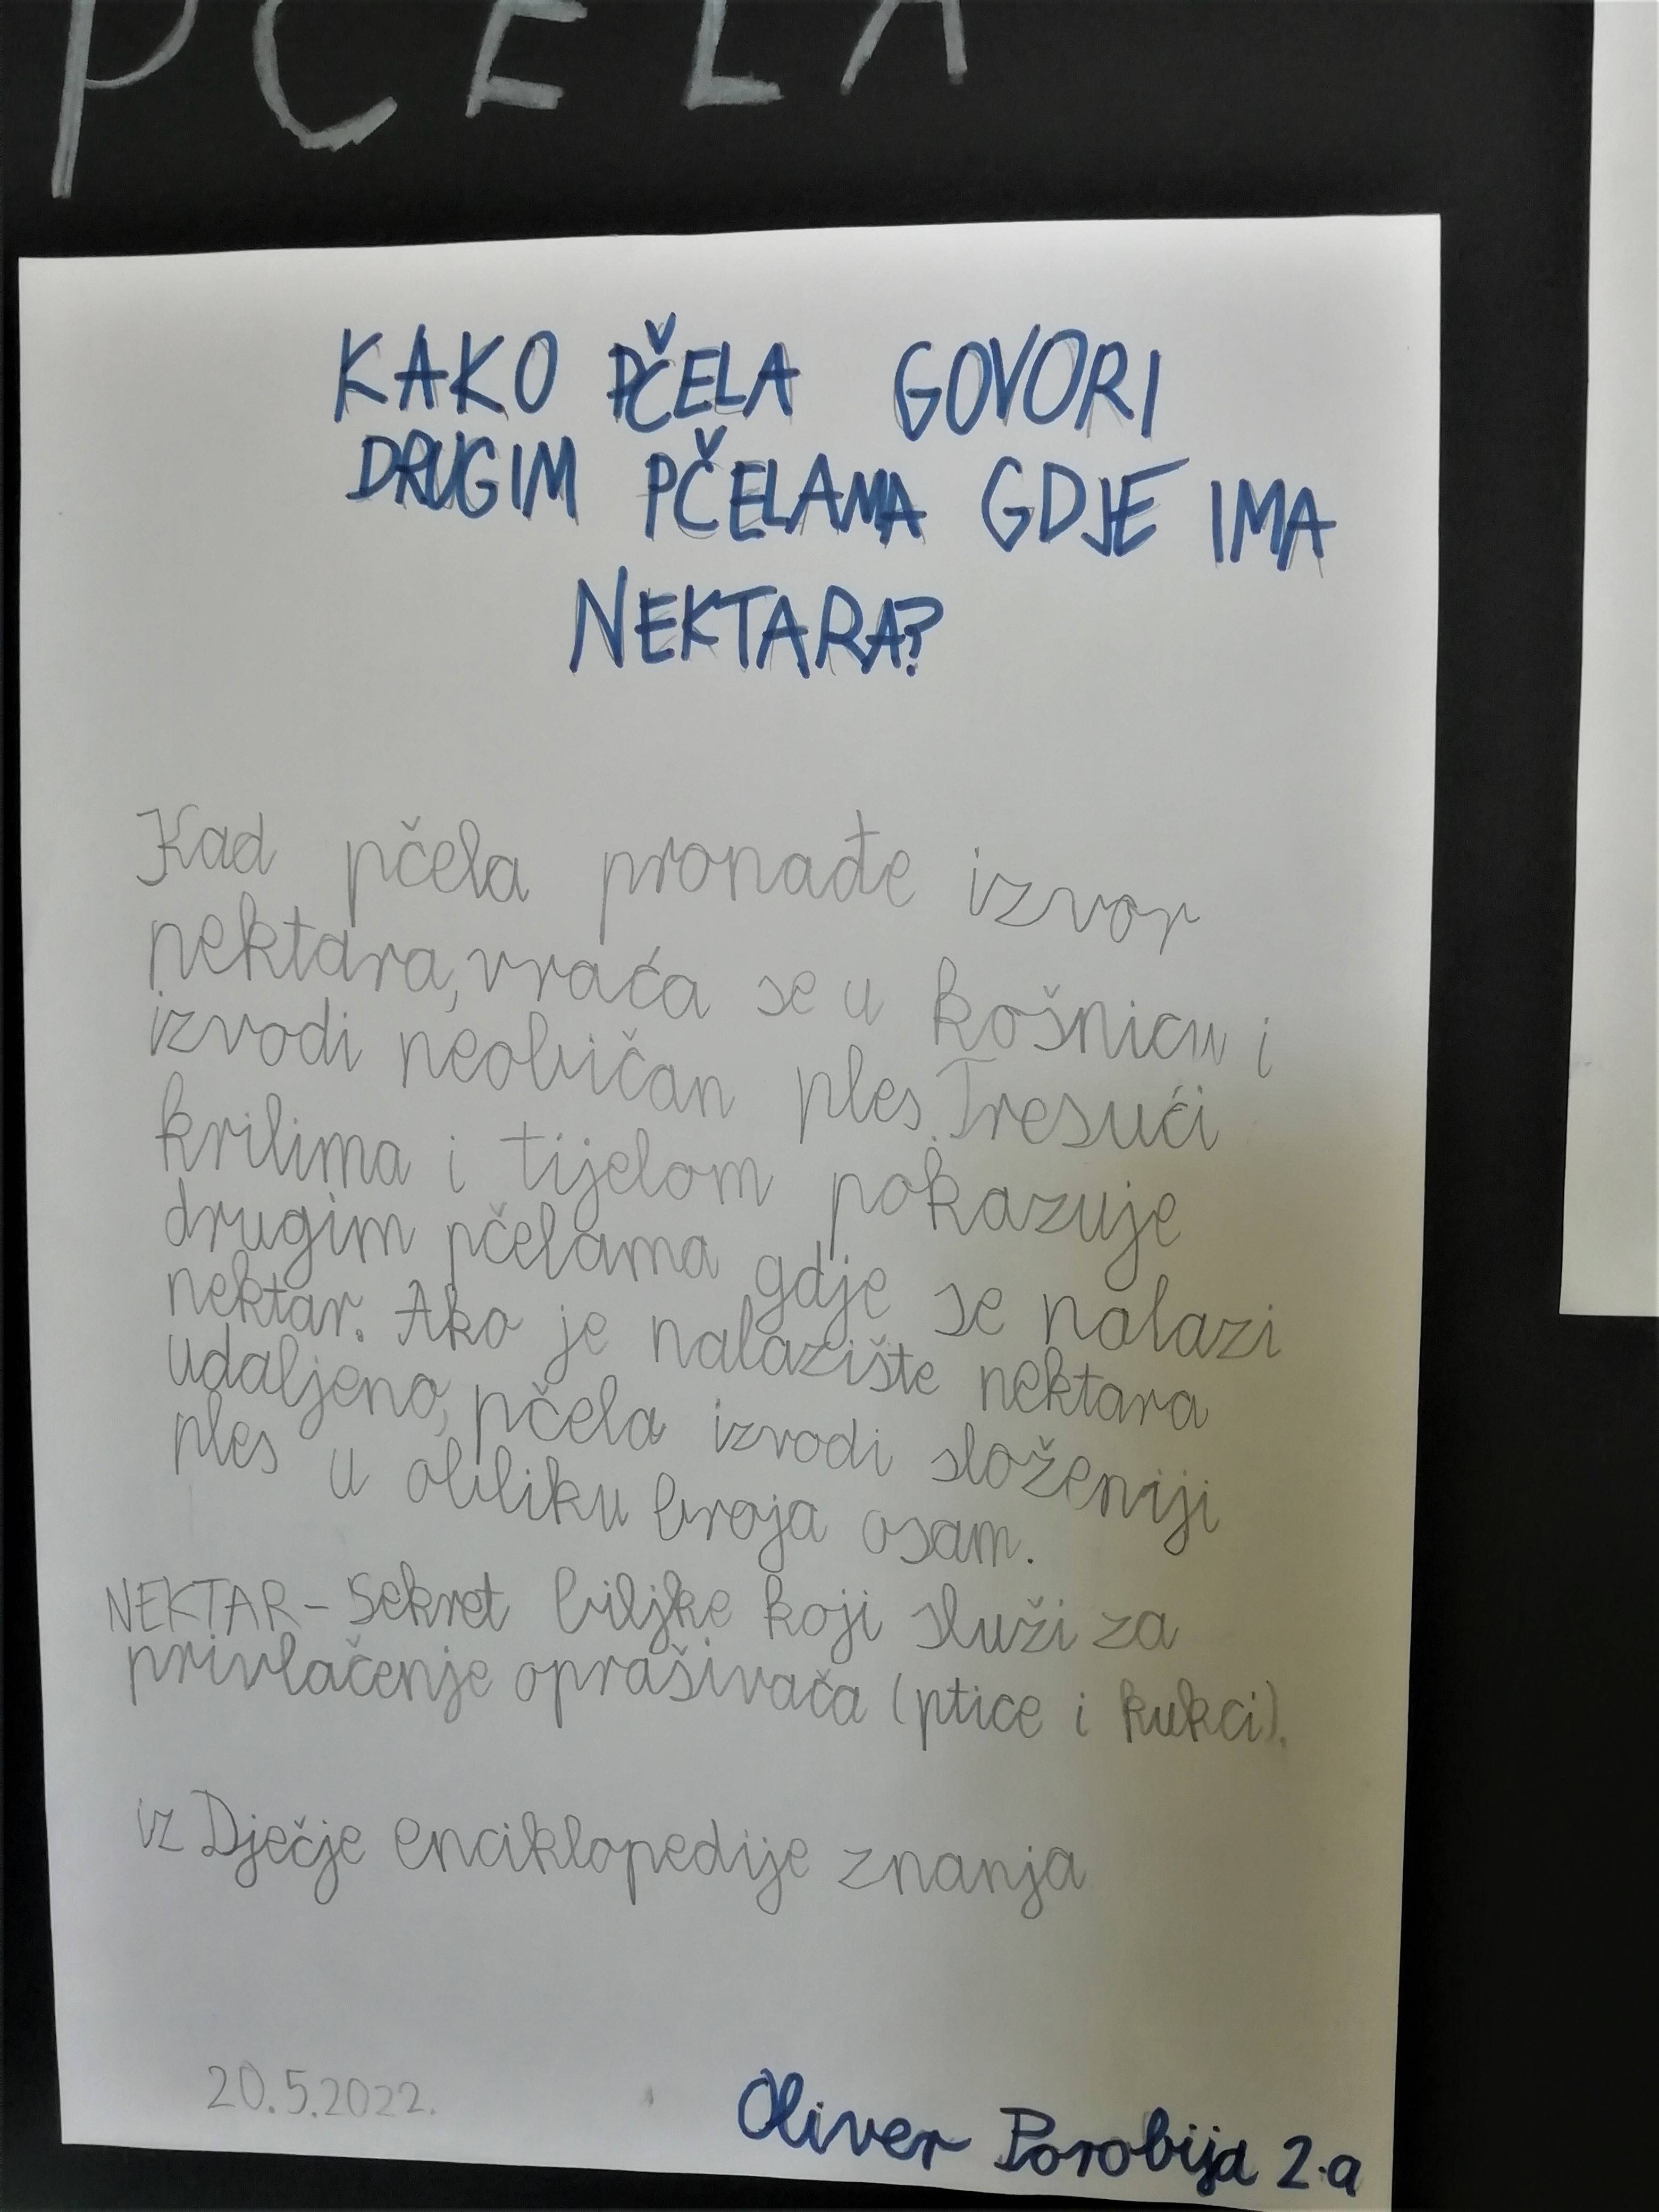 PČELA
KAKO PČELA GOVORI
DRUGIM PČELAMA GDJE IMA
NEKTARA?
Kad pčela pronađe izvor
nektara, vraća se u košnicu i
izvodi neobičan ples. Tresući
krilima i tijelom pokazuje
drugim pčelama gdje se nalazi
nektar. Ako je nalazište nektara
udaljeno, pčela izvodi složeniji
ples u obliku broja osam.
NEKTAR - Sekret biljke koji služi za
privlačenje oprašivača (ptice i kukci).
iz Dječje enciklopedije znanja
20.5.2022.
Oliver Porobija 2.a